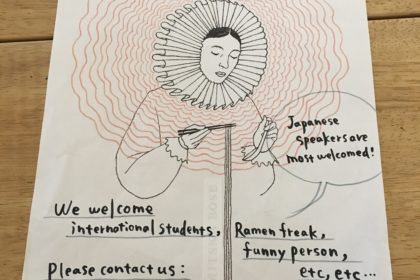 Japanese
speakers are
most welcomed!
We welcome
international students,
Ramen freak,
funny person,
etc, etc...
Please contact us: